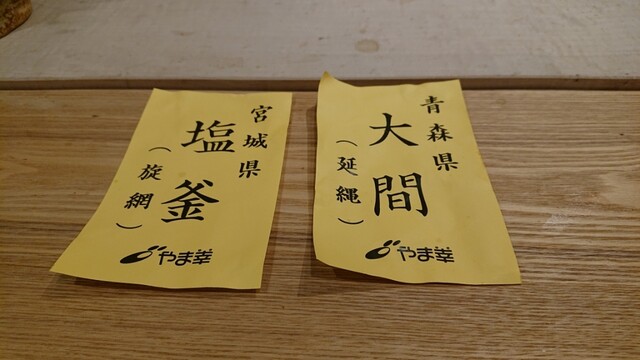 宮城県
塩釜
(旋網)
やま幸
青森県
大間
(延縄)
やま幸